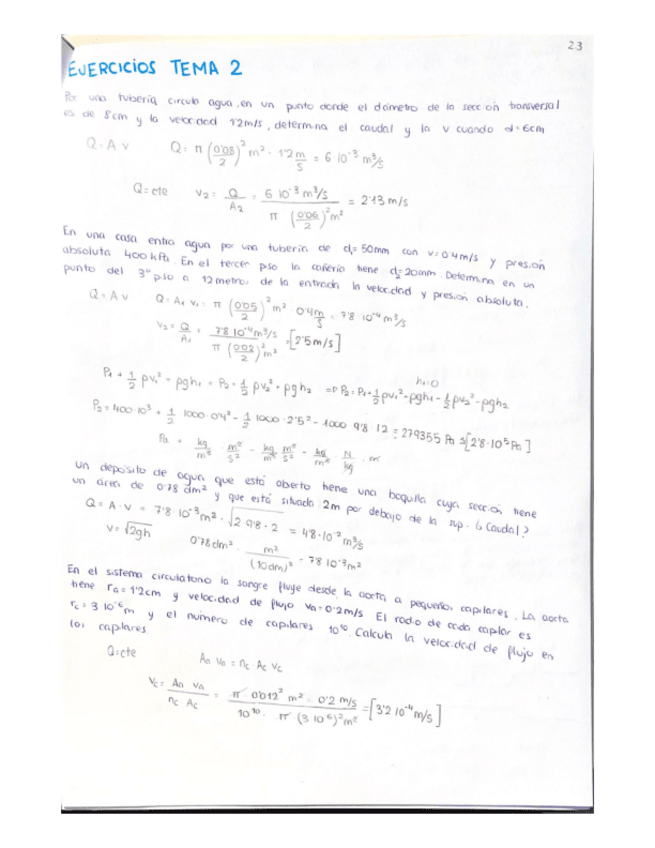 23
EJERCICIOS TEMA 2
Por una tubería circula agua, en un punto donde el diámetro de la sección transversal
es de 8cm y la velocidad 1'2m/s, determina el caudal y la v cuando d=6cm
Q=A v Q= π (0'08/2)² m² · 1'2 m/s = 6 10⁻³ m³/s
Q=cte v₂= Q/A₂ = 6 10⁻³ m³/s / π (0'06/2)² m² = 2'13 m/s
En una casa entra agua por una tubería de d₁=50mm con v=0'4m/s y presión
absoluta 400kPa. En el tercer piso la cañería tiene d₂=20mm. Determina en un
punto del 3er piso a 12 metros de la entrada la velocidad y presión absoluta.
Q=A v Q=A₁ v₁ = π (0'05/2)² m² · 0'4 m/s = 7'8 10⁻⁴ m³/s
v₂= Q/A₁ = 7'8 10⁻⁴ m³/s / π (0'02/2)² m² = [2'5m/s]
h₁=0
P₁ + 1/2 ρv₁² + ρgh₁ = P₂ + 1/2 ρv₂² + ρgh₂ => P₂ = P₁ + 1/2 ρv₁² - ρgh₁ - 1/2 ρv₂² - ρgh₂
P₂ = 400·10³ + 1/2 1000·0'4² - 1/2 1000·2'5² - 1000 9'8 12 = 279355 Pa ≈ [2'8·10⁵ Pa]
Pa + kg/m³ · m²/s² - kg/m³ m²/s² - kg/m³ · N/kg · m
Un depósito de agua que está abierto tiene una boquilla cuya sección tiene
un área de 0'78 dm² y que está situada 2m por debajo de la sup. ¿Caudal?
Q = A · v = 7'8·10⁻³ m² · √2 9'8·2 = 4'8·10⁻² m³/s
v = √2gh 0'78dm² · m²/(10dm)² = 7'8 10⁻³ m²
En el sistema circulatorio la sangre fluye desde la aorta a pequeños capilares. La aorta
tiene ra=1'2cm y velocidad de flujo va=0'2m/s El radio de cada capilar es
rc = 3 10⁻⁶ m y el número de capilares 10¹⁰. Calcula la velocidad de flujo en
los capilares.
Q=cte Aa va = nc · Ac vc
vc = Aa va / nc Ac = π 0'012² m² · 0'2 m/s / 10¹⁰ · π (3 10⁻⁶)² m² = [3'2 10⁻⁴ m/s]